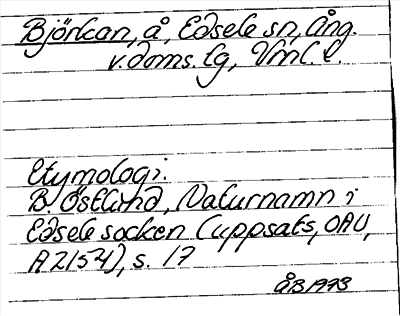 Björkan, å, Edsele sn, Ång.
v. doms. lg, Vml. l.
Etymologi:
B. Östlund, Naturnamn i
Edsele socken (uppsats, OAU,
A2154), s. 17
ÅB 1973